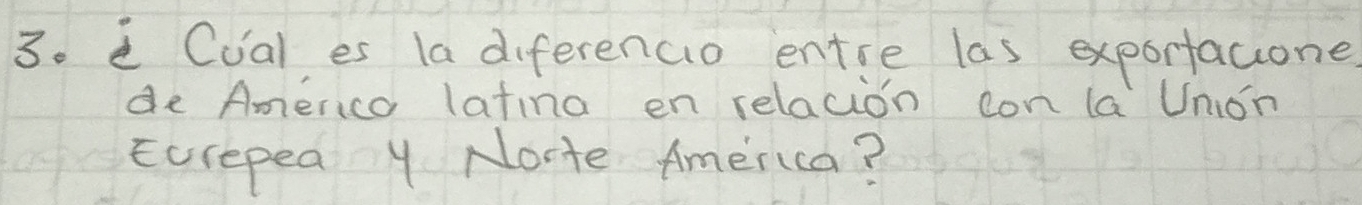 3. ¿ Cúal es la diferencia entre las exportacione
de América latina en relación con la Unión
Eurepea y Norte América?